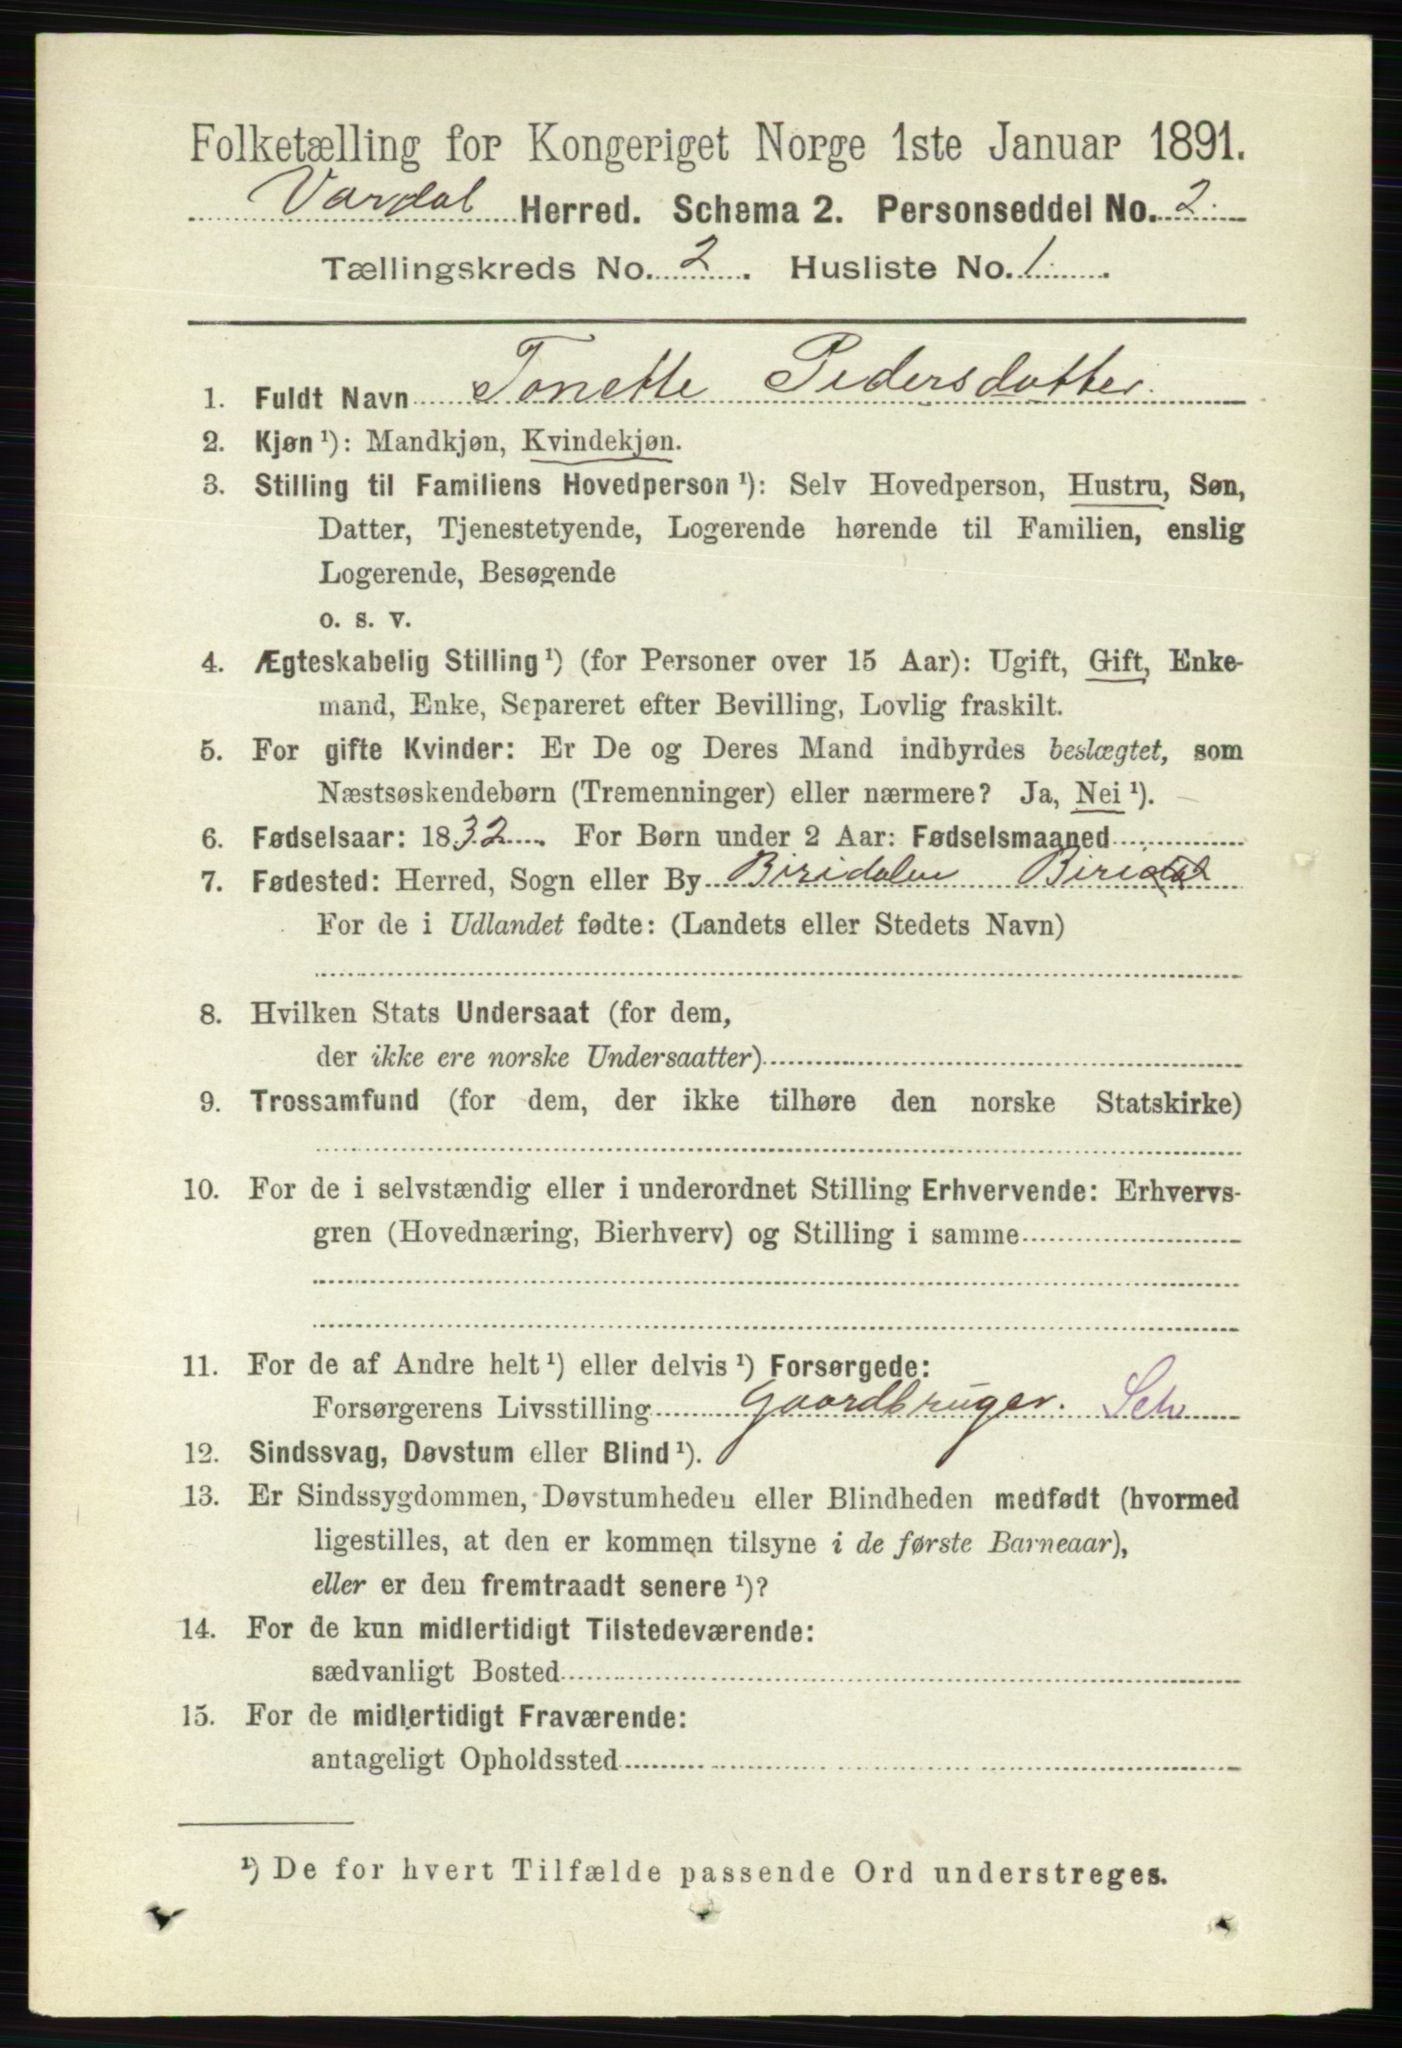 Folketælling for Kongeriget Norge 1ste Januar 1891.
Vardal Herred. Schema 2. Personseddel No. 2.
Tællingskreds No. 2. Husliste No. 1.
1. Fuldt Navn Tonette Pedersdatter.
2. Kjøn ¹): Mandkjøn, Kvindekjøn.
3. Stilling til Familiens Hovedperson ¹): Selv Hovedperson, Hustru, Søn,
Datter, Tjenestetyende, Logerende hørende til Familien, enslig
Logerende, Besøgende
o. s. v.
4. Ægteskabelig Stilling ¹) (for Personer over 15 Aar): Ugift, Gift, Enke-
mand, Enke, Separeret efter Bevilling, Lovlig fraskilt.
5. For gifte Kvinder: Er De og Deres Mand indbyrdes beslægtet, som
Næstsøskendebørn (Tremenninger) eller nærmere? Ja, Nei ¹).
6. Fødselsaar: 1832. For Børn under 2 Aar: Fødselsmaaned
7. Fødested: Herred, Sogn eller By Biridalen Birid
For de i Udlandet fødte: (Landets eller Stedets Navn)
8. Hvilken Stats Undersaat (for dem,
der ikke ere norske Undersaatter)
9. Trossamfund (for dem, der ikke tilhøre den norske Statskirke)
10. For de i selvstændig eller i underordnet Stilling Erhvervende: Erhvervs-
gren (Hovednæring, Bierhverv) og Stilling i samme
11. For de af Andre helt ¹) eller delvis ¹) Forsørgede:
Forsørgerens Livsstilling Gaardbruger. Selv
12. Sindssvag, Døvstum eller Blind ¹).
13. Er Sindssygdommen, Døvstumheden eller Blindheden medfødt (hvormed
ligestilles, at den er kommen tilsyne i de første Barneaar),
eller er den fremtraadt senere ¹)?
14. For de kun midlertidigt Tilstedeværende:
sædvanligt Bosted
15. For de midlertidigt Fraværende:
antageligt Opholdssted
¹) De for hvert Tilfælde passende Ord understreges.